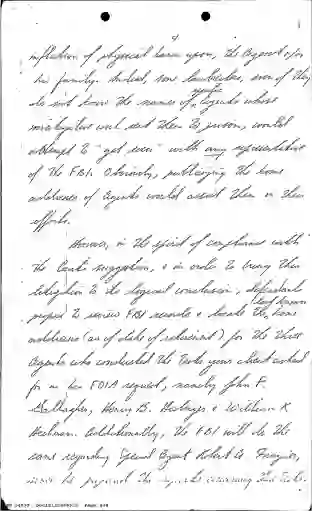 4
infliction of physical harm upon, the Agent &/or
his family. Indeed, some lawbreakers, even if they
do not know the names of specific Agents whose
investigative work sent them to prison, would
attempt to "get even" with any representative
of the FBI. Obviously, publicizing the home
addresses of Agents would assist them in their
efforts.
However, in the spirit of compliance with
the Court's suggestion, & in order to bring this
litigation to its logical conclusion, defendants
propose to review FBI records & locate the last known home
addresses (as of date of retirement) for the three
Agents who conducted the tests your client asked
for in his FOIA request, namely John F.
Gallagher, Henry B. Heiberger, & William R.
Heilman. Additionally, the FBI will do the
same regarding Special Agent Robert A. Frazier,
he prepared the reports concerning the tests.